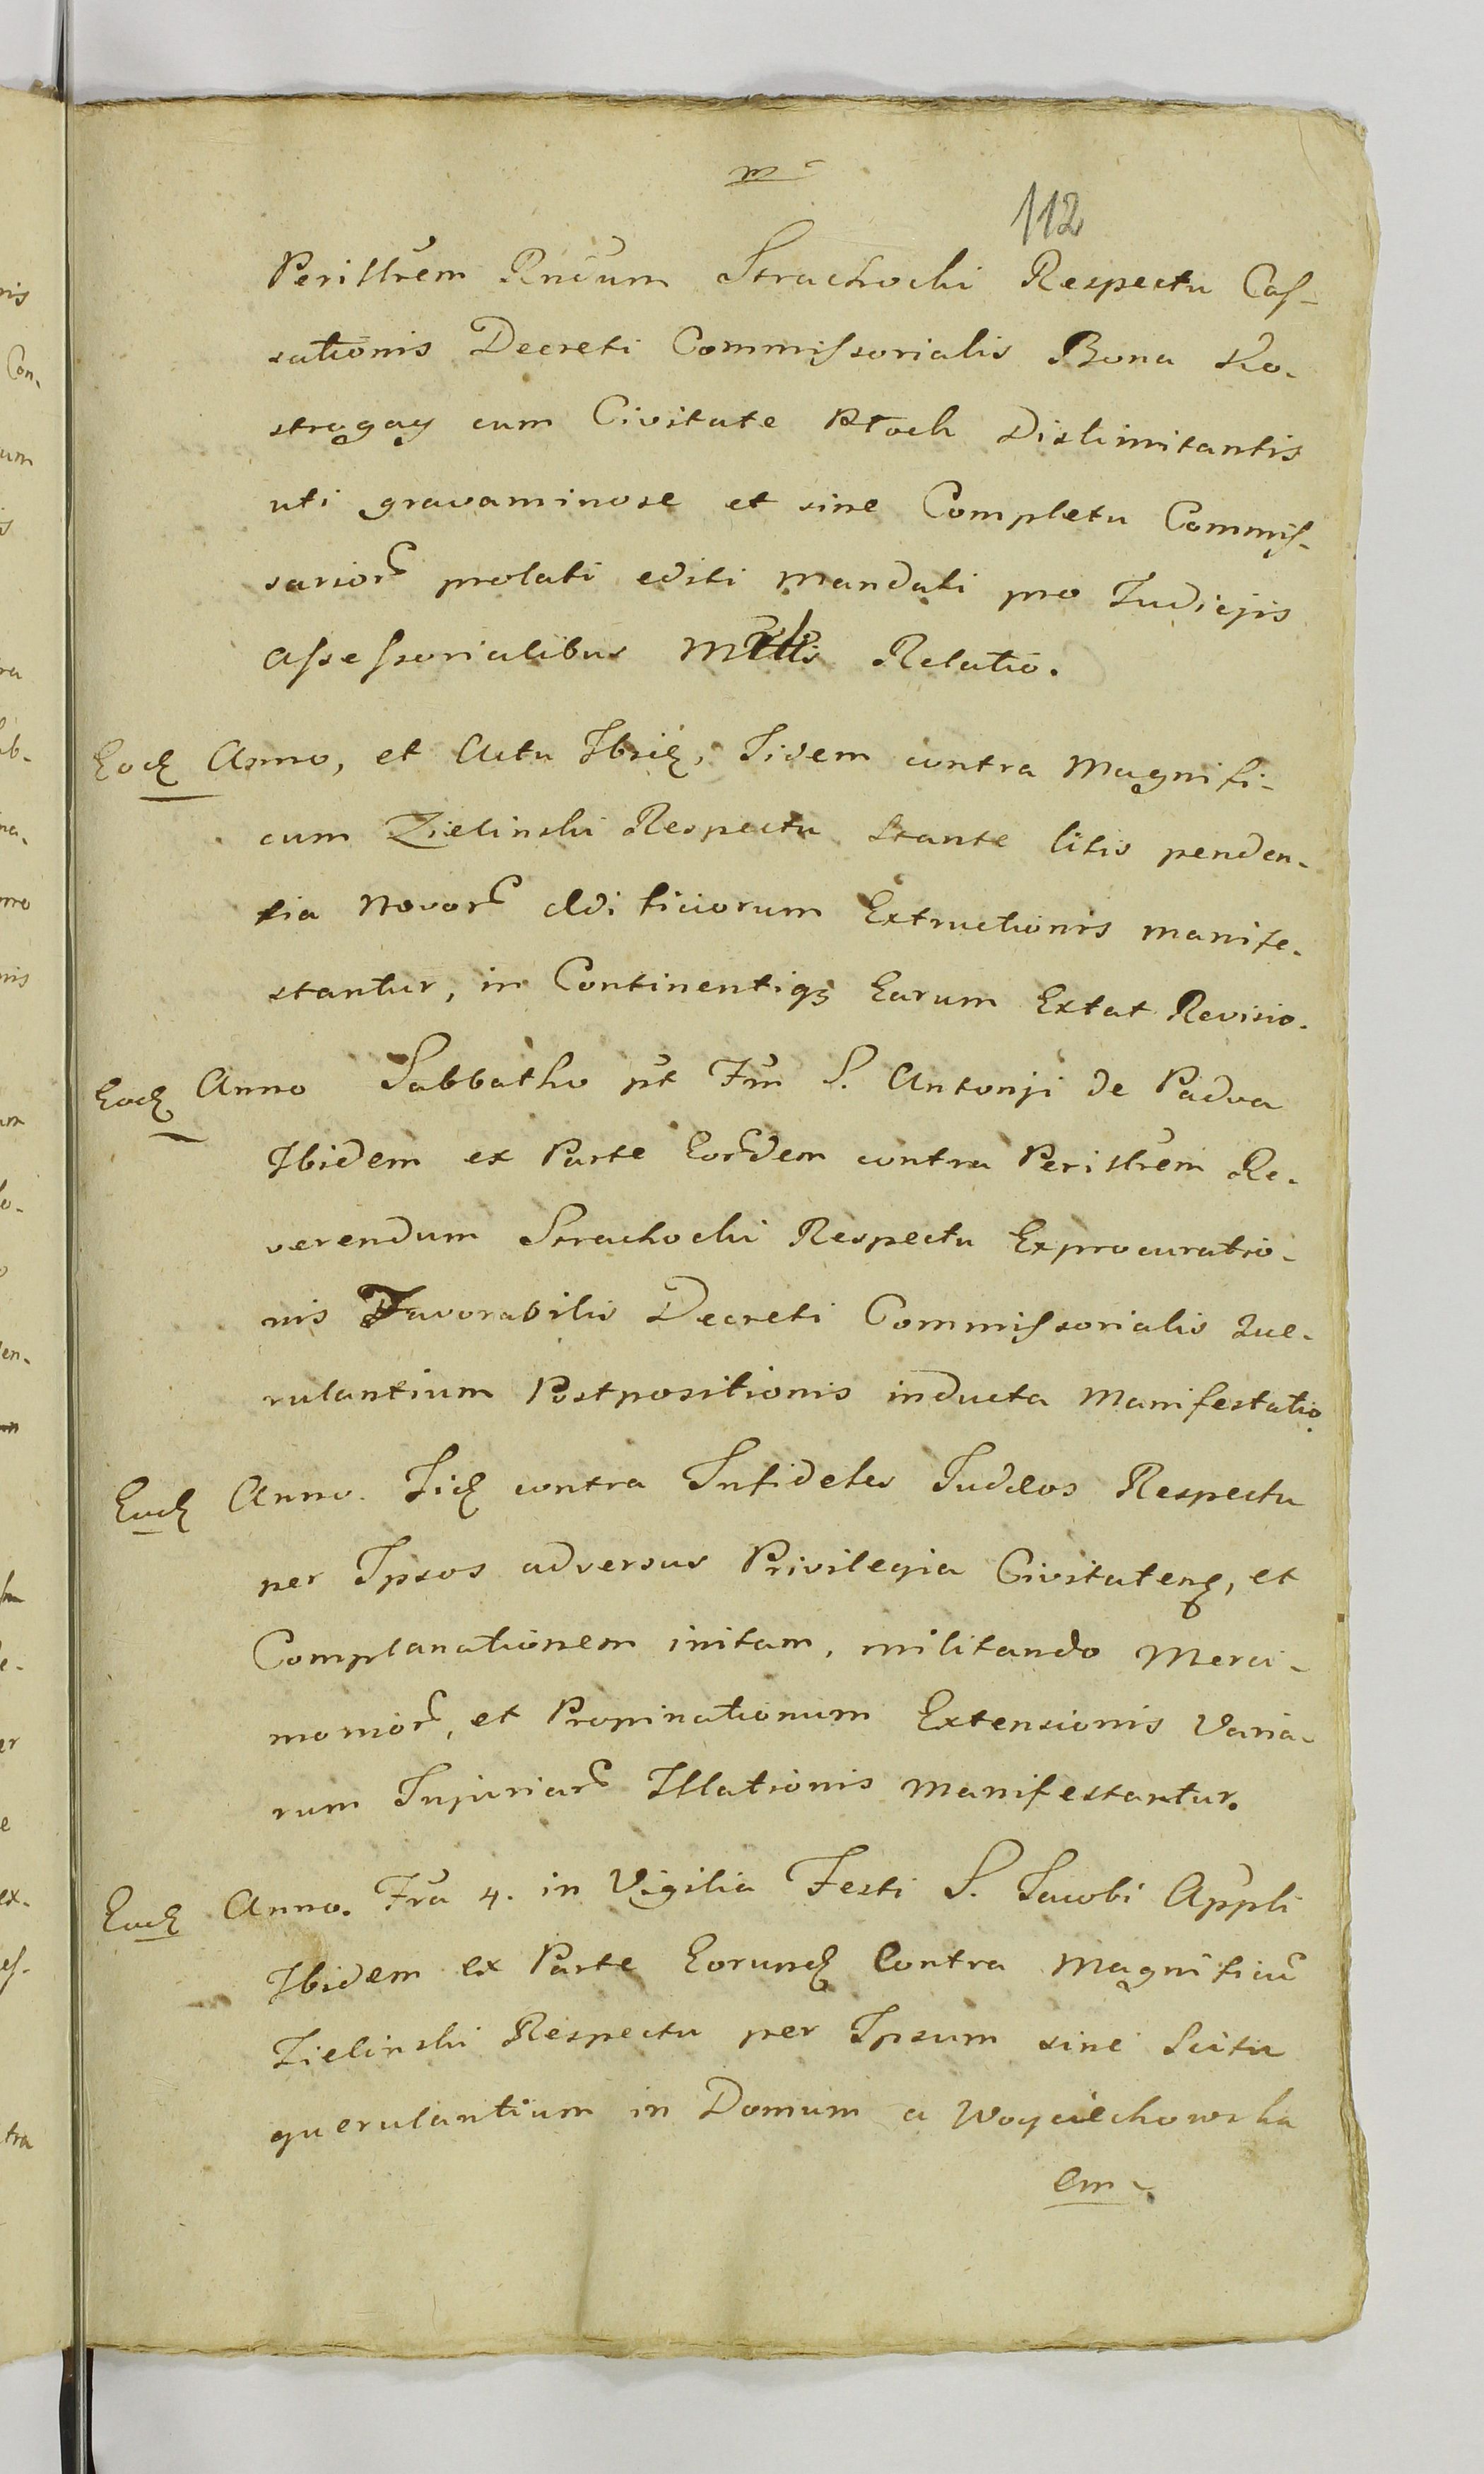 112
Perillrem Rndum Strachocki Respectu Caſ-
sationis Decreti Commiſsorialis Bona Ko-
strogay cum Civitate Plock Dislimitantis
uti gravaminose et sine Completu Commiſ-
sarior prolati editi Mandati pro Iudicijs
Aſseſsorialibus Relatio.
Eod Anno, et Actu Ibid, Iidem contra Magnifi-
cum Zielinski Respectu Stante litis penden-
tia Novor Ædificiorum Extructionis manife-
stantur, in Continentiq3 Earum Extat Revisio.
Eod Anno Sabbatho pt Fm S. Antonji de Padua
Ibidem ex Parte Eordem contra Perillrem Re-
verendum Strachocki Respectu Exprocuratio-
nis Favorabilis Decreti Commiſsorialis Que-
rulantium Postpositionis inducta Manifestatio.
Eod Anno. Iid contra Infideles Iudæos Respectu
per Ipsos adversus Privilegia Civitaten, et
Complanationem initam, militando Merci-
monior, et Propinationum Extensionis Varia-
rum Injuriar Illationis manifestantur.
Eod Anno. Fra 4. in Vigilia Festi S. Iacobi Appli
Ibidem ex Parte Eorund Contra Magnificu
Zielinski Respectu per Ipsum sine Scitu
querulantium in Domum a Woyciechowska
em-